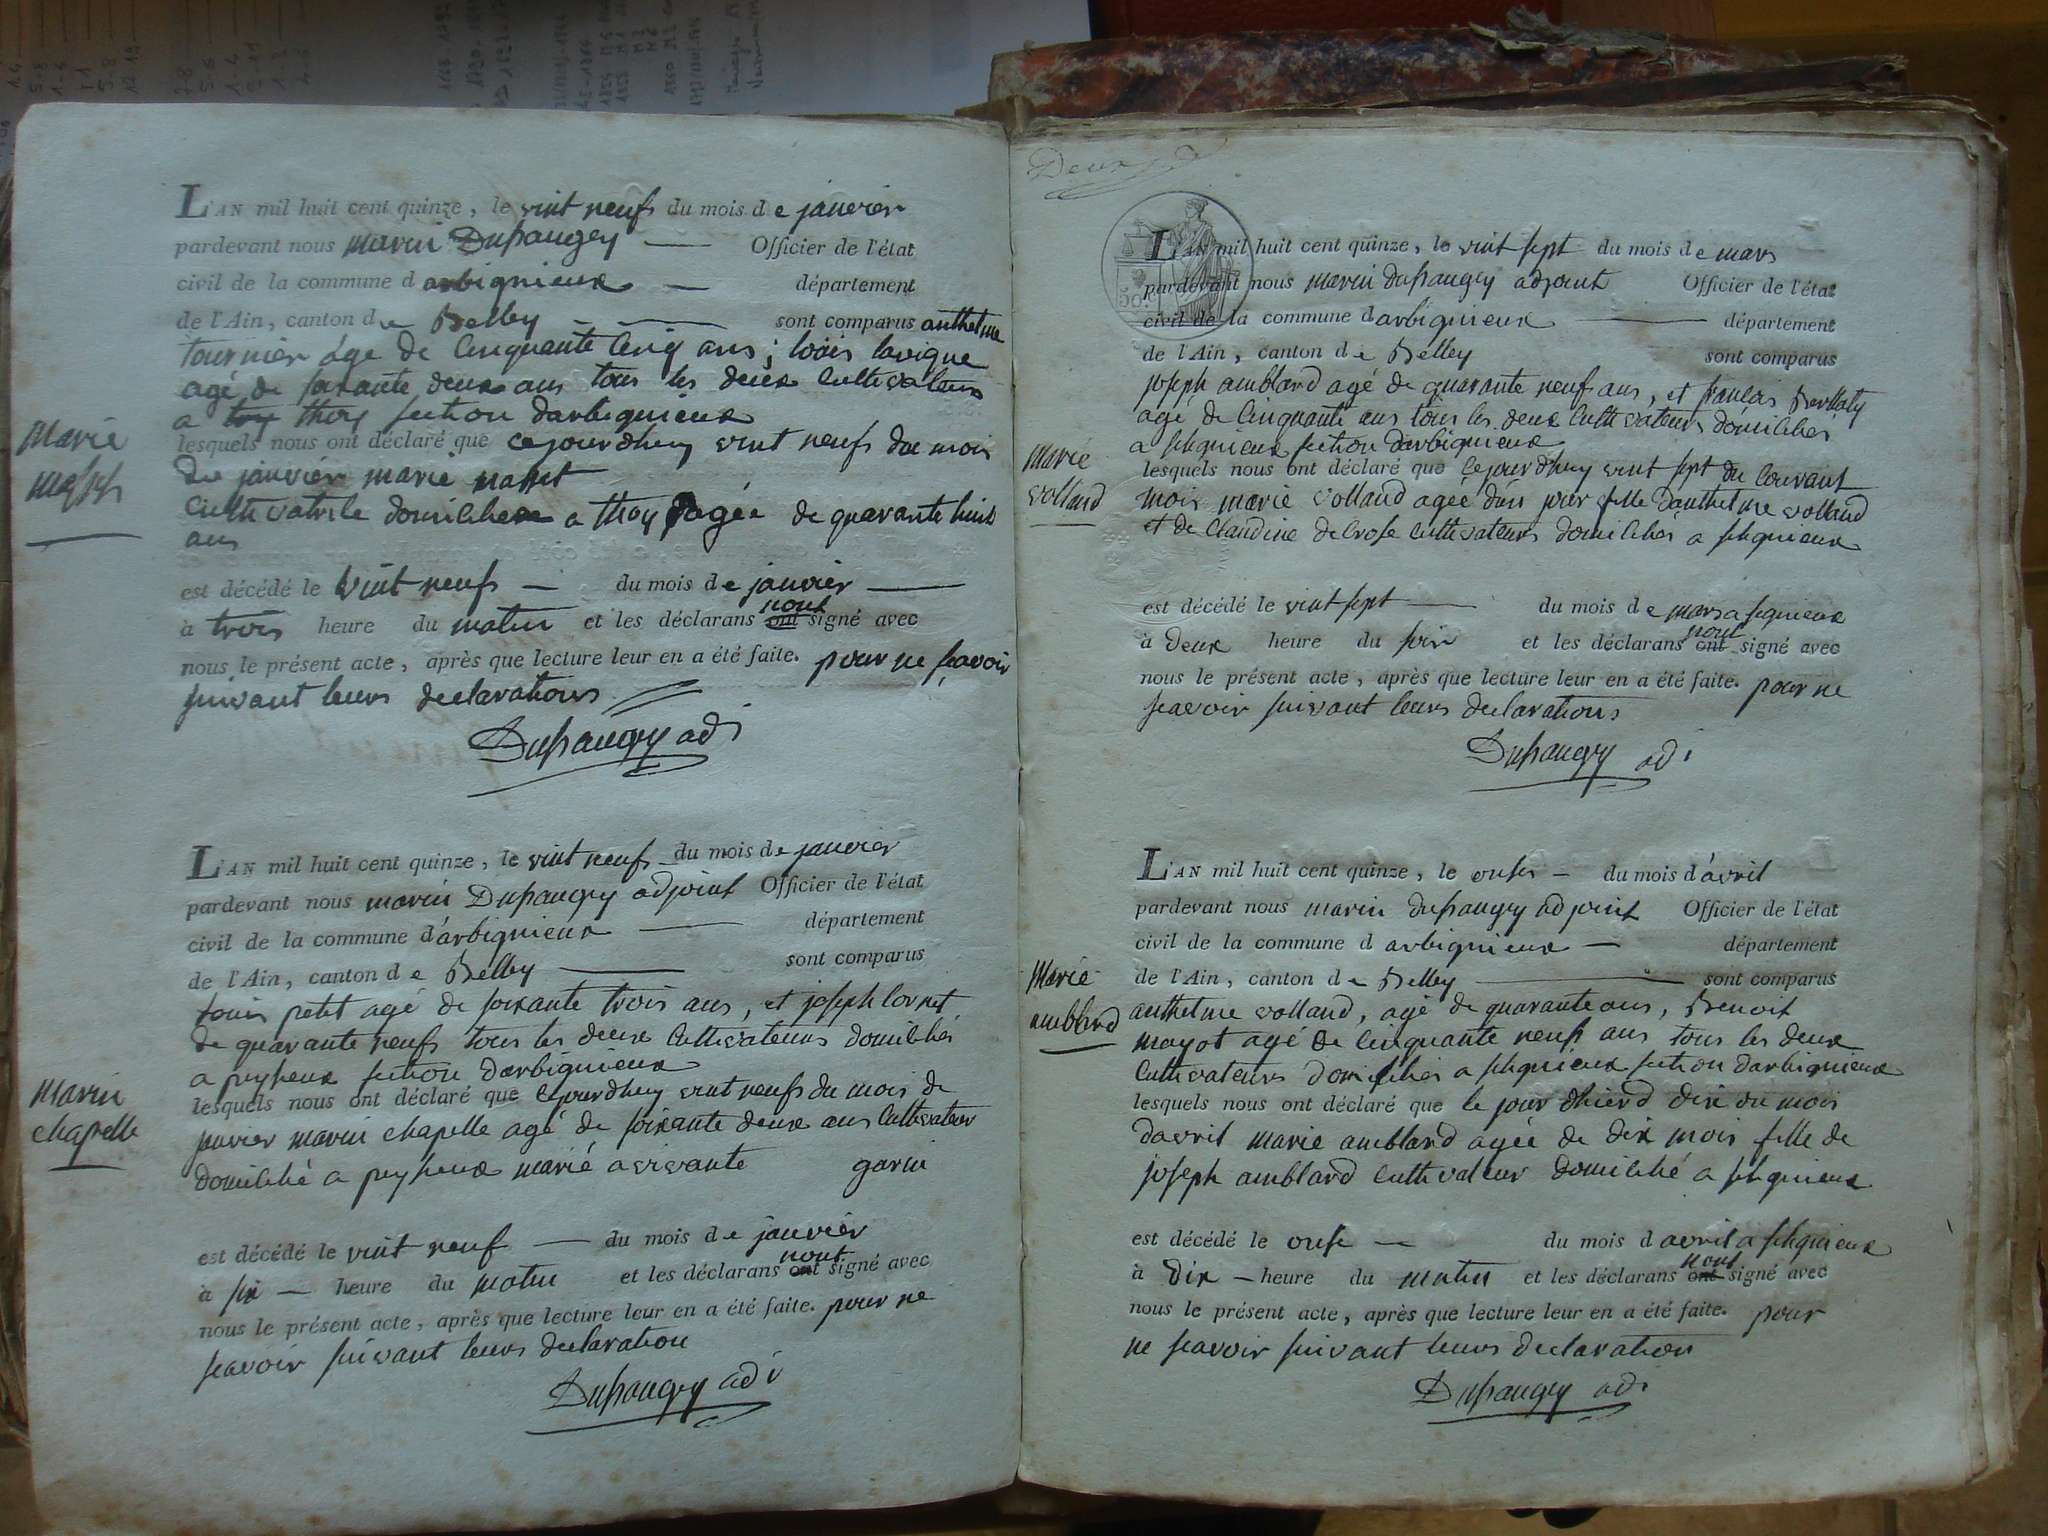 L'AN mil huit cent quinze, le vint neufs du mois de janvier
pardevant nous marin Dupraugey — Officier de l'état
civil de la commune d arbignieux — département
de l'Ain, canton de Belley — sont comparus anthelme
tournier agé de cinquante cinq ans; loüis lavigne
agé de soixante deux ans tous les deux cultivateurs
a thoy section darbignieux
Marie
lesquels nous ont déclaré que cejourdhuy vint neufs du mois
de janvier marie masset
cultivatrice domiciliee a thoy agée de quarante huit
ans
est décédé le vint neufs — du mois de janvier —
nont
à trois heure du matin et les déclarans ont signé avec
nous le présent acte, après que lecture leur en a été faite. pour ne scavoir
suivant leurs declarations
adj
L'AN mil huit cent quinze, le vint neufs du mois de janvier
pardevant nous marin adjoint Officier de l'état
civil de la commune d'arbignieux — département
de l'Ain, canton de Belley — sont comparus
louis petit agé de soixante trois ans, et joseph cornet
de quarante neufs tous les deux cultivateurs domiciliés
a peyzieux section darbignieux
marin
chapelle
lesquels nous ont déclaré que cejourdhuy vint neufs du mois de
janvier marin chapelle agé de soixante deux ans cultivateur
domicilié a peyzieux marié a vivante garin
est décédé le vint neuf — du mois de janvier
nont
à six — heure du matin et les déclarans ont signé avec
nous le présent acte, après que lecture leur en a été faite. pour ne
scavoir suivant leurs declaration
adj
Deux
50
L'AN mil huit cent quinze, le vint sept du mois de mars
pardevant nous marin adjoint Officier de l'état
civil de la commune d arbignieux — département
de l'Ain, canton de Belley sont comparus
joseph amblard agé de quarante neuf ans, et francois
agé de cinquante ans tous les deux cultivateurs domiciliés
a section darbignieux
marie
volland
lesquels nous ont déclaré que cejourdhuy vint sept du courant
mois marie volland agée d'un jour fille danthelme volland
et de claudine delrose cultivateurs domiciliés a
est décédé le vint sept — du mois de mars a
nont
à deux heure du soir et les déclarans ont signé avec
nous le présent acte, après que lecture leur en a été faite. pour ne
scavoir suivant leurs declarations
adj
L'AN mil huit cent quinze, le onse — du mois d'avril
pardevant nous marin adjoint Officier de l'état
civil de la commune d arbignieux — département
de l'Ain, canton de Belley — sont comparus
Marie
amblard
anthelme volland, agé de quarante ans, Benoit
mayot agé de cinquante neuf ans tous les deux
cultivateurs domicilies a section darbignieux
lesquels nous ont déclaré que le jour dhierd dix du mois
davril marie amblard agée de dix mois fille de
joseph amblard cultivateur domicilié a
est décédé le onse — du mois d avril a
nont
à dix — heure du matin et les déclarans ont signé avec
nous le présent acte, après que lecture leur en a été faite. pour
ne scavoir suivant leurs declaration
adj